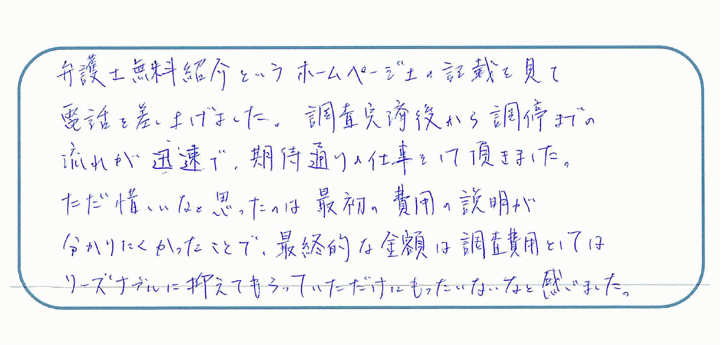 弁護士無料紹介というホームページ上の記載を見て
電話を差し上げました。調査完済後から調停までの
流れが迅速で、期待通りの仕事をして頂きました。
ただ惜しいなと思ったのは最初の費用の説明が
分かりにくかったことで、最終的な金額は調査費用としては
リーズナブルに抑えてもらっていただけにもったいないなと感じました。